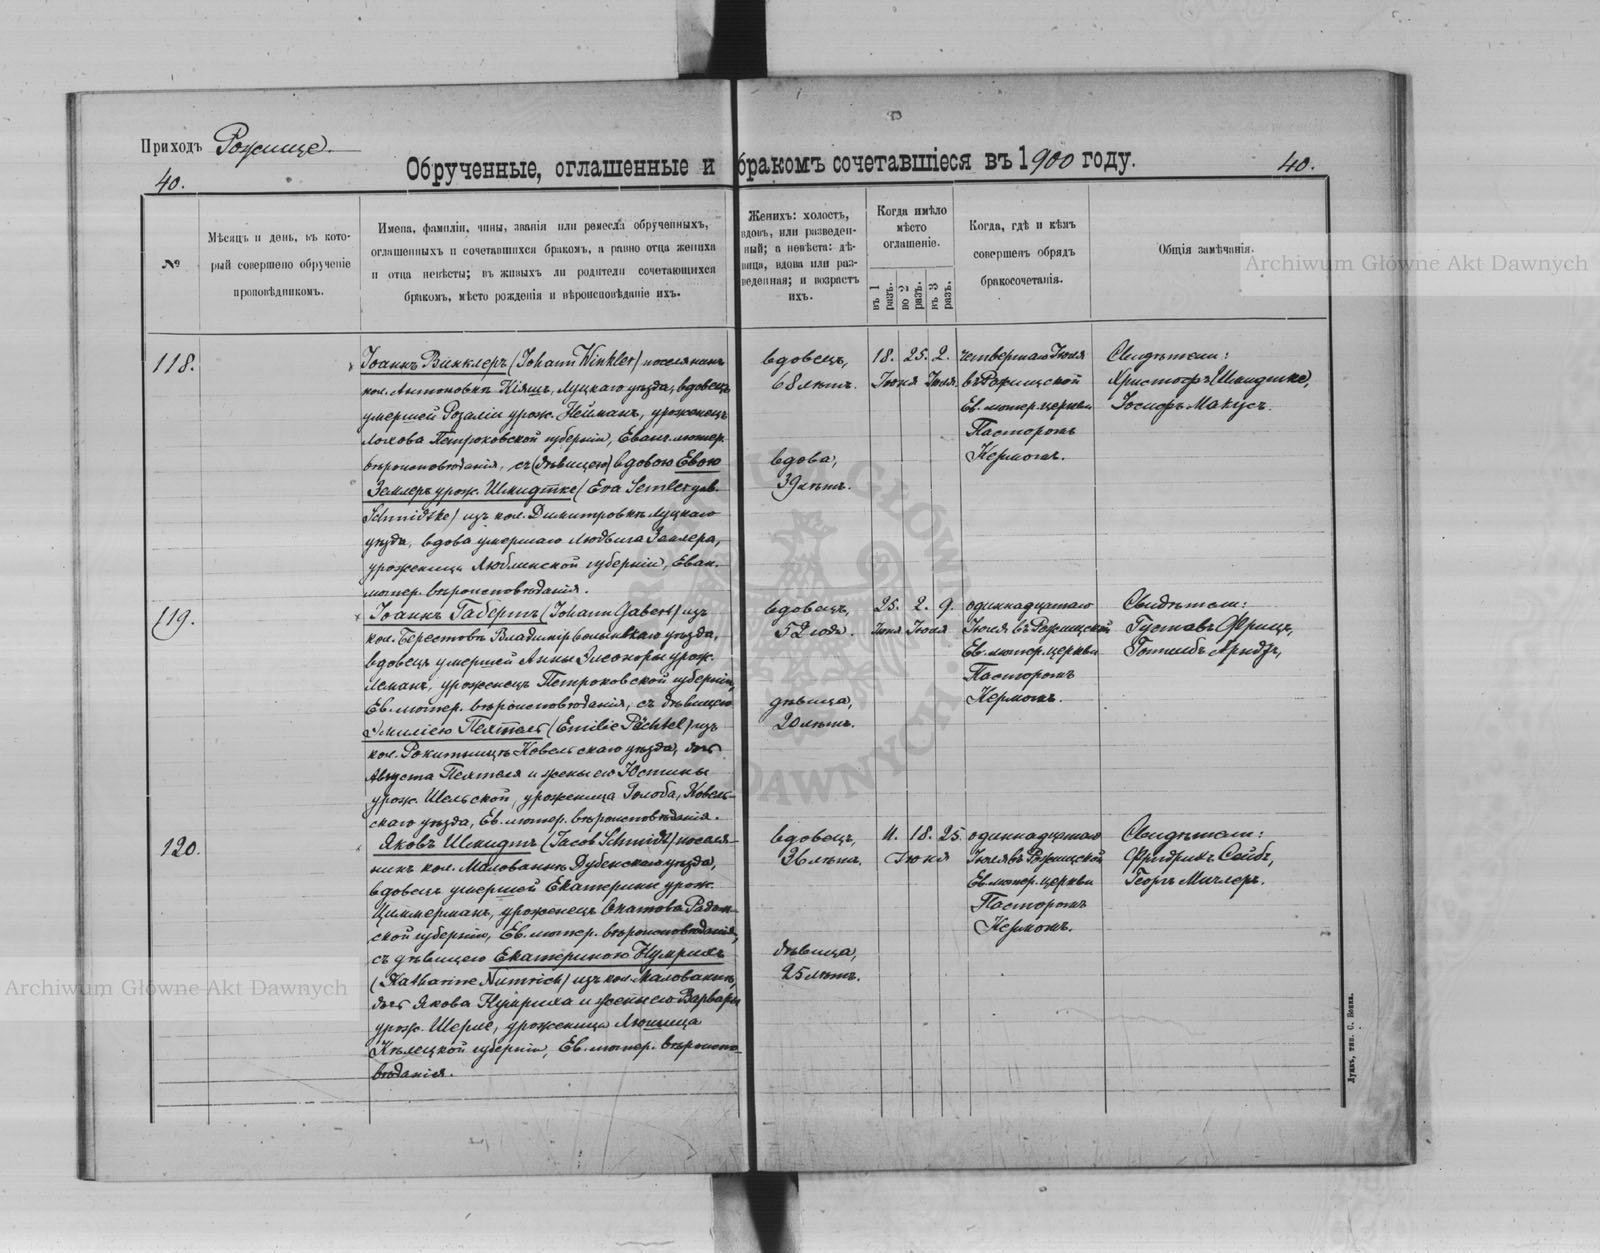 Приходъ Рожище.
40.
Обрученные, оглашенные и бракомъ сочетавшіеся въ 1900 году.
40.
№
Мѣсяцъ и день, въ кото-
рый совершено обрученіе
проповѣдникомъ.
Имена, фамиліи, чины, званія или ремесла обрученныхъ,
оглашенныхъ и сочетавшихся бракомъ, а равно отца жениха
и отца невѣсты; въ живыхъ ли родители сочетающихся
бракомъ, мѣсто рожденія и вѣроисповѣданіе ихъ.
Женихъ: холостъ,
вдовъ, или разведен-
ный; а невѣста: дѣ-
вица, вдова или раз-
веденная; и возрастъ
ихъ.
Когда имѣло
мѣсто
оглашеніе.
въ 1 разъ.
во 2 разъ.
въ 3 разъ.
Когда, гдѣ и кѣмъ
совершенъ обрядъ
бракосочетанія.
Общія замѣчанія.
118.
Іоаннъ Винклеръ (Johann Winkler) поселянинъ
кол. Антоновки Кіяшъ, Луцкаго уѣзда, вдовецъ
умершей Розаліи урож. Нейманъ, уроженецъ
Петроковской губерніи, Еванг. лютер.
вѣроисповѣданія, съ (дѣвицею) вдовою Евою
Землеръ урож. Шмидтке (Eva Semler geb.
Schmidtke) изъ кол. Димитровки Луцкаго
уѣзда, вдова умершаго Людвига Землера,
уроженица Люблинской губерніи, Еван.
лютер. вѣроисповѣданія.
вдовецъ,
68 лѣтъ.
вдова,
39 лѣтъ.
18. 25. 2.
Іюня Іюля
четвертаго Іюля
въ Рожищской
Ев. лютер. церкви
Пасторомъ
Кермомъ.
Свидѣтели:
Христофъ Шмидтке,
Іосифъ Макусъ.
119.
Іоаннъ Габертъ (Johann Gabert) изъ
кол. Берестовъ Владимірволынскаго уѣзда,
вдовецъ умершей Анны Элеоноры урож.
Леманъ, уроженецъ Петроковской губерніи,
Ев. лютер. вѣроисповѣданія, съ дѣвицею
Эмиліею Пехтель (Emilie Pächtel) изъ
кол. Рокитницъ Ковельскаго уѣзда, дочь
Августа Пехтеля и жены его Юстины
урож. Шельской, уроженица Голоба, Ковель-
скаго уѣзда, Ев. лютер. вѣроисповѣданія.
вдовецъ,
52 года.
дѣвица,
20 лѣтъ.
25. 2. 9.
Іюня Іюля
одиннадцатаго
Іюля въ Рожищской
Ев. лютер. церкви
Пасторомъ
Кермомъ.
Свидѣтели:
Густавъ Фрицъ,
Готлибъ Арндтъ,
120.
Яковъ Шмидтъ (Jacob Schmidt) поселя-
нинъ кол. Малованки Дубенскаго уѣзда,
вдовецъ умершей Екатерины урож.
Циммерманъ, уроженецъ Опатова Радом-
ской губерніи, Ев. лютер. вѣроисповѣданія,
съ дѣвицею Екатериною Нумрихъ
(Katharine Numrich) изъ кол. Малованки,
дочь Якова Нумриха и жены его Варвары
урож. Шерле, уроженица
Кѣлецкой губерніи, Ев. лютер. вѣроиспо-
вѣданія.
вдовецъ,
36 лѣтъ.
дѣвица,
25 лѣтъ.
11. 18. 25.
Іюня
одиннадцатаго
Іюля въ Рожищской
Ев. лютер. церкви
Пасторомъ
Кермомъ.
Свидѣтели:
Фридрихъ Сейбъ,
Георгъ Миллеръ.
Archiwum Główne Akt Dawnych
Archiwum Główne Akt Dawnych